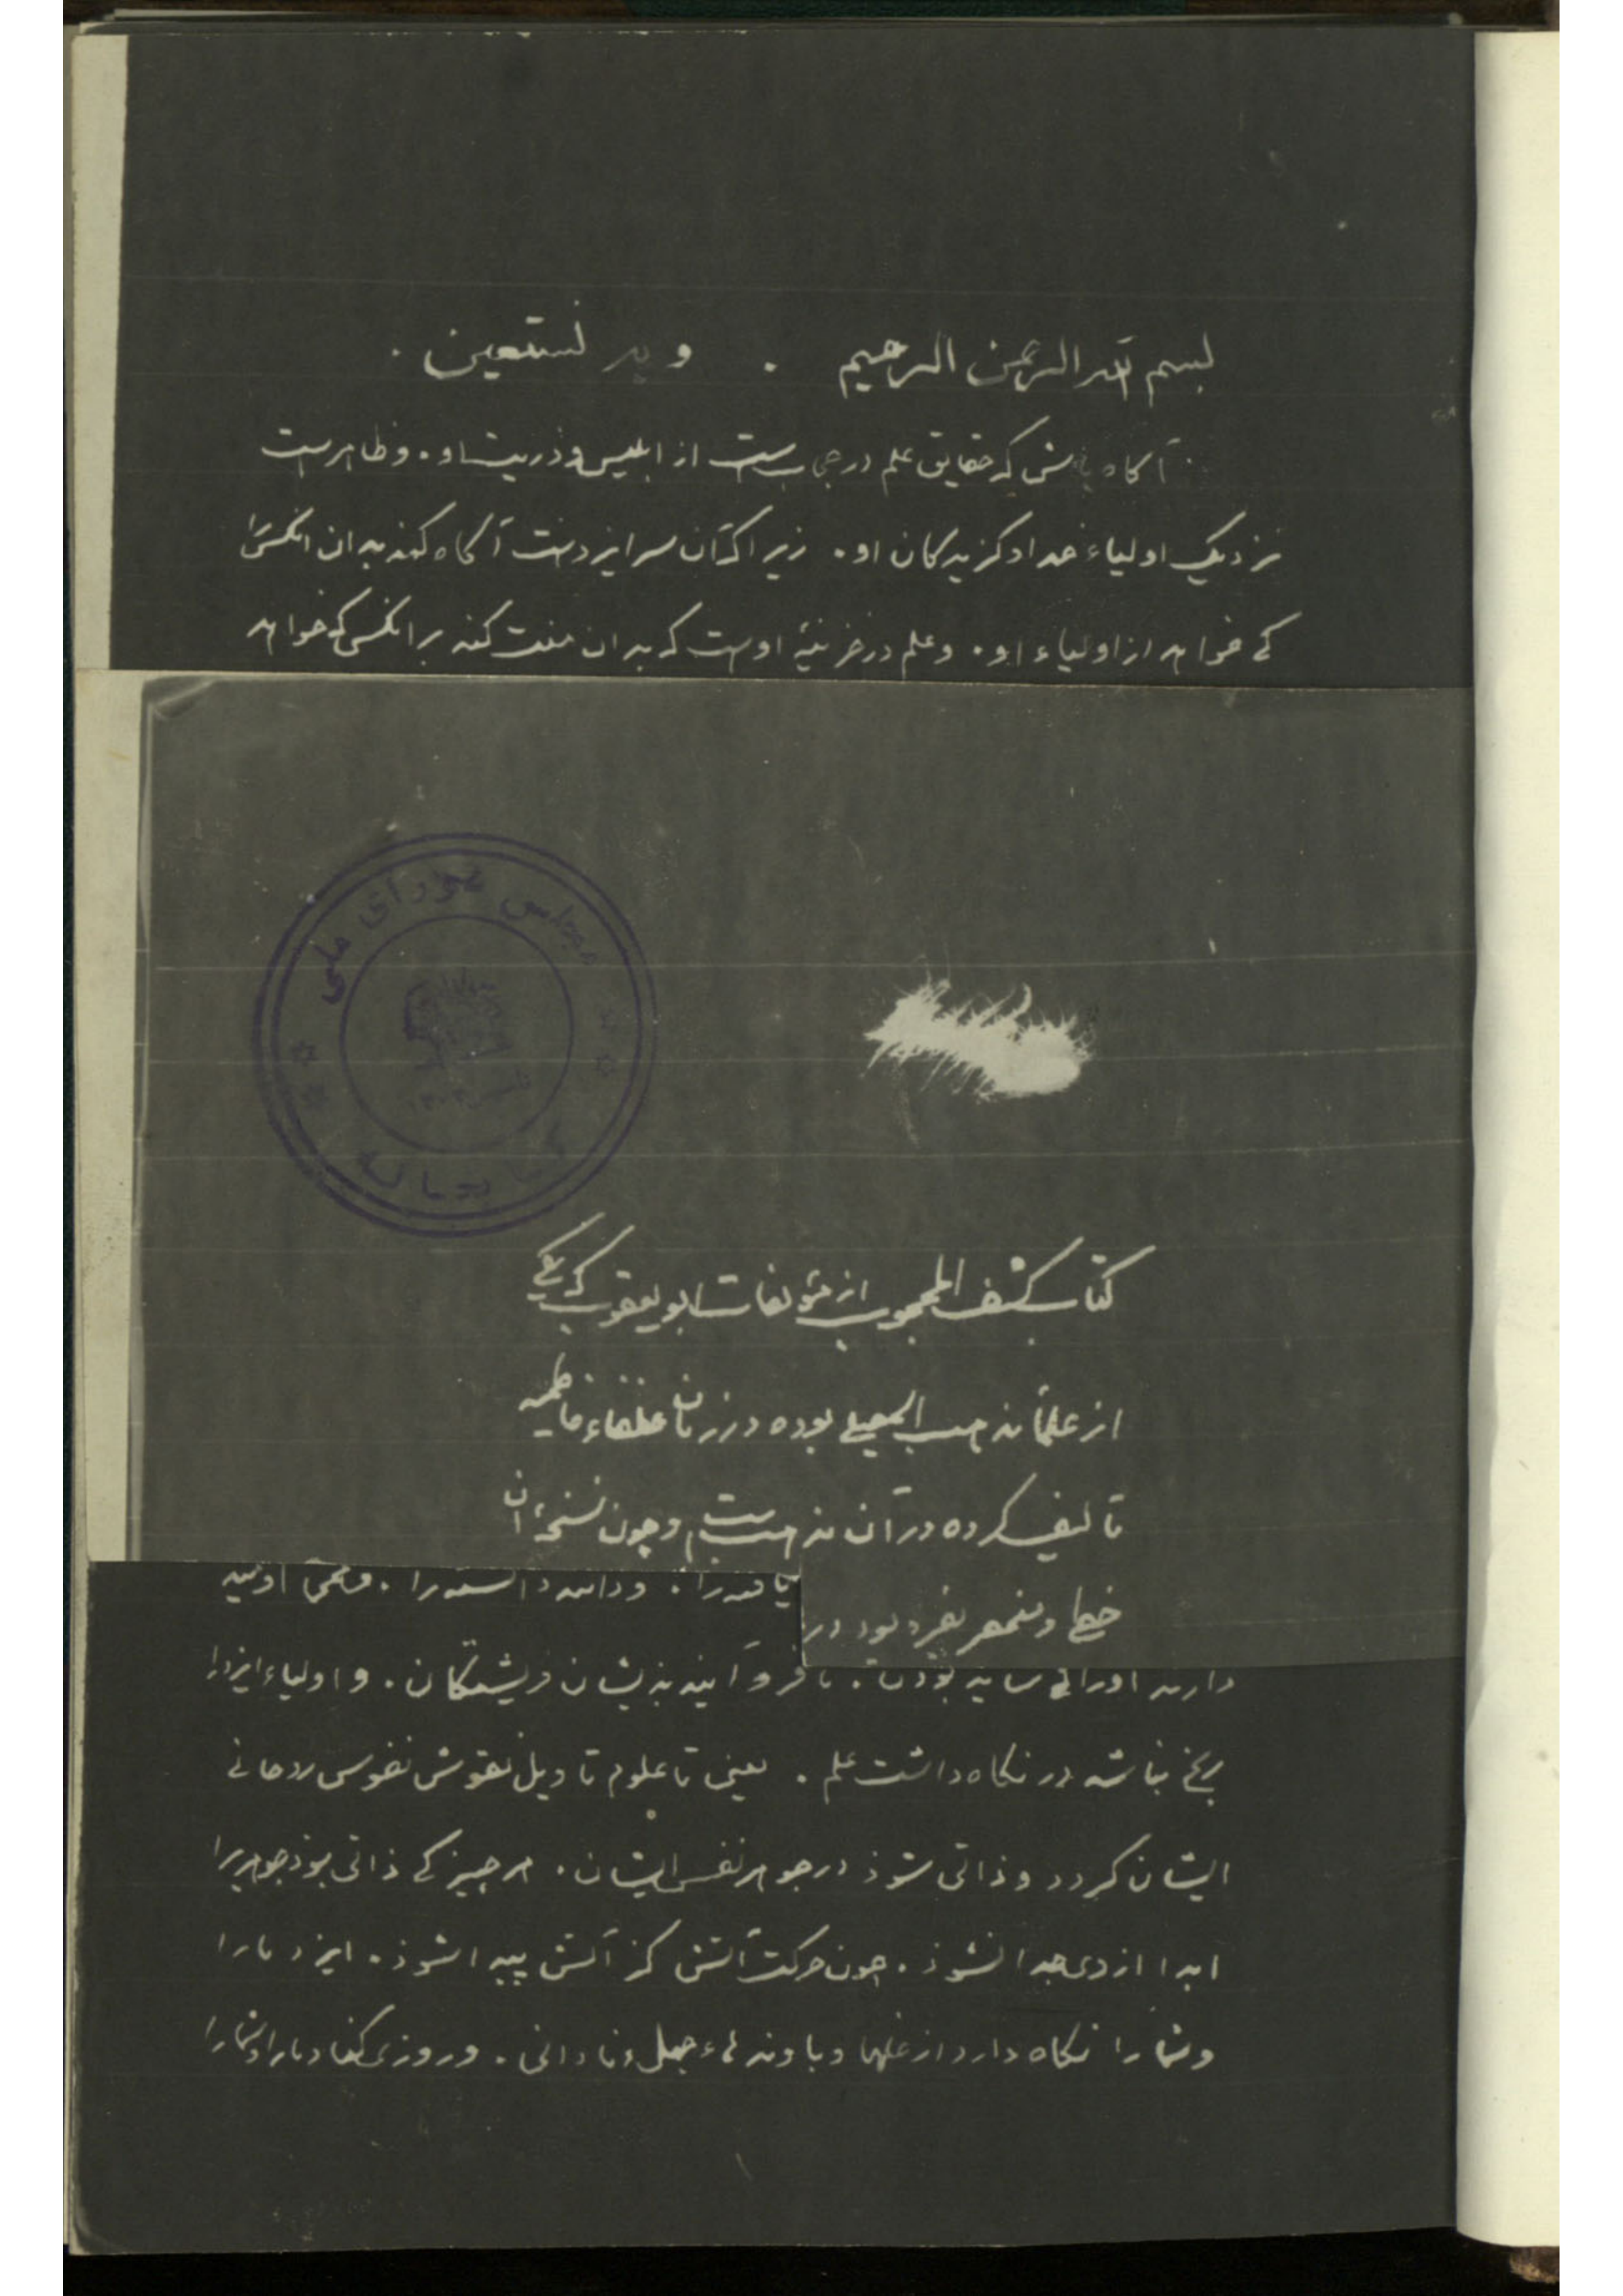 بسم الله الرحمن الرحیم . و به نستعین .
آکاه باش که حقایق علم در حجابست از ابلیس و ذریت او . و ظاهرست
نزدیک اولیاء خدا و کزیدکان او . زیرا کان سر ایزدست آکاه کند بدان انکس را
کی خواهد از اولیاء او . و علم در خزینهٔ اوست که بدان منت کند بر انکس کی خواهد
مجلس شورای ملی
کتابخانه
کتاب کشف المحجوب از مؤلفات ابو یعقوب که یکی
از علماء مذهب اسمعیلی بوده در زمان خلفاء فاطمیه
تالیف کرده در آن مذهبست و چون نسخهٔ ان
خطی و منحصر بفرد بود در
یافته را . و داننده دانسته را .
دارند او را بی بودن . تا فرو آیند بذیشان فریشتکان . و اولیاء ایزد را
رنج نباشد در نکاه داشت علم . یعنی تا علوم تاویل نقوش نفوس روحانی
ایشان کردد و ذاتی شوذ در جوهر نفس ایشان . هر چیز کی ذاتی بوذ جوهریرا
ابدا از وی جدا نشوذ . چون حرکت آتش کز آتش پیدا شوذ . ایزد ما را
و شما را نکاه دارد از غلها و باوندهاء جهل و نادانی . و روزی کناد ما را و شما را